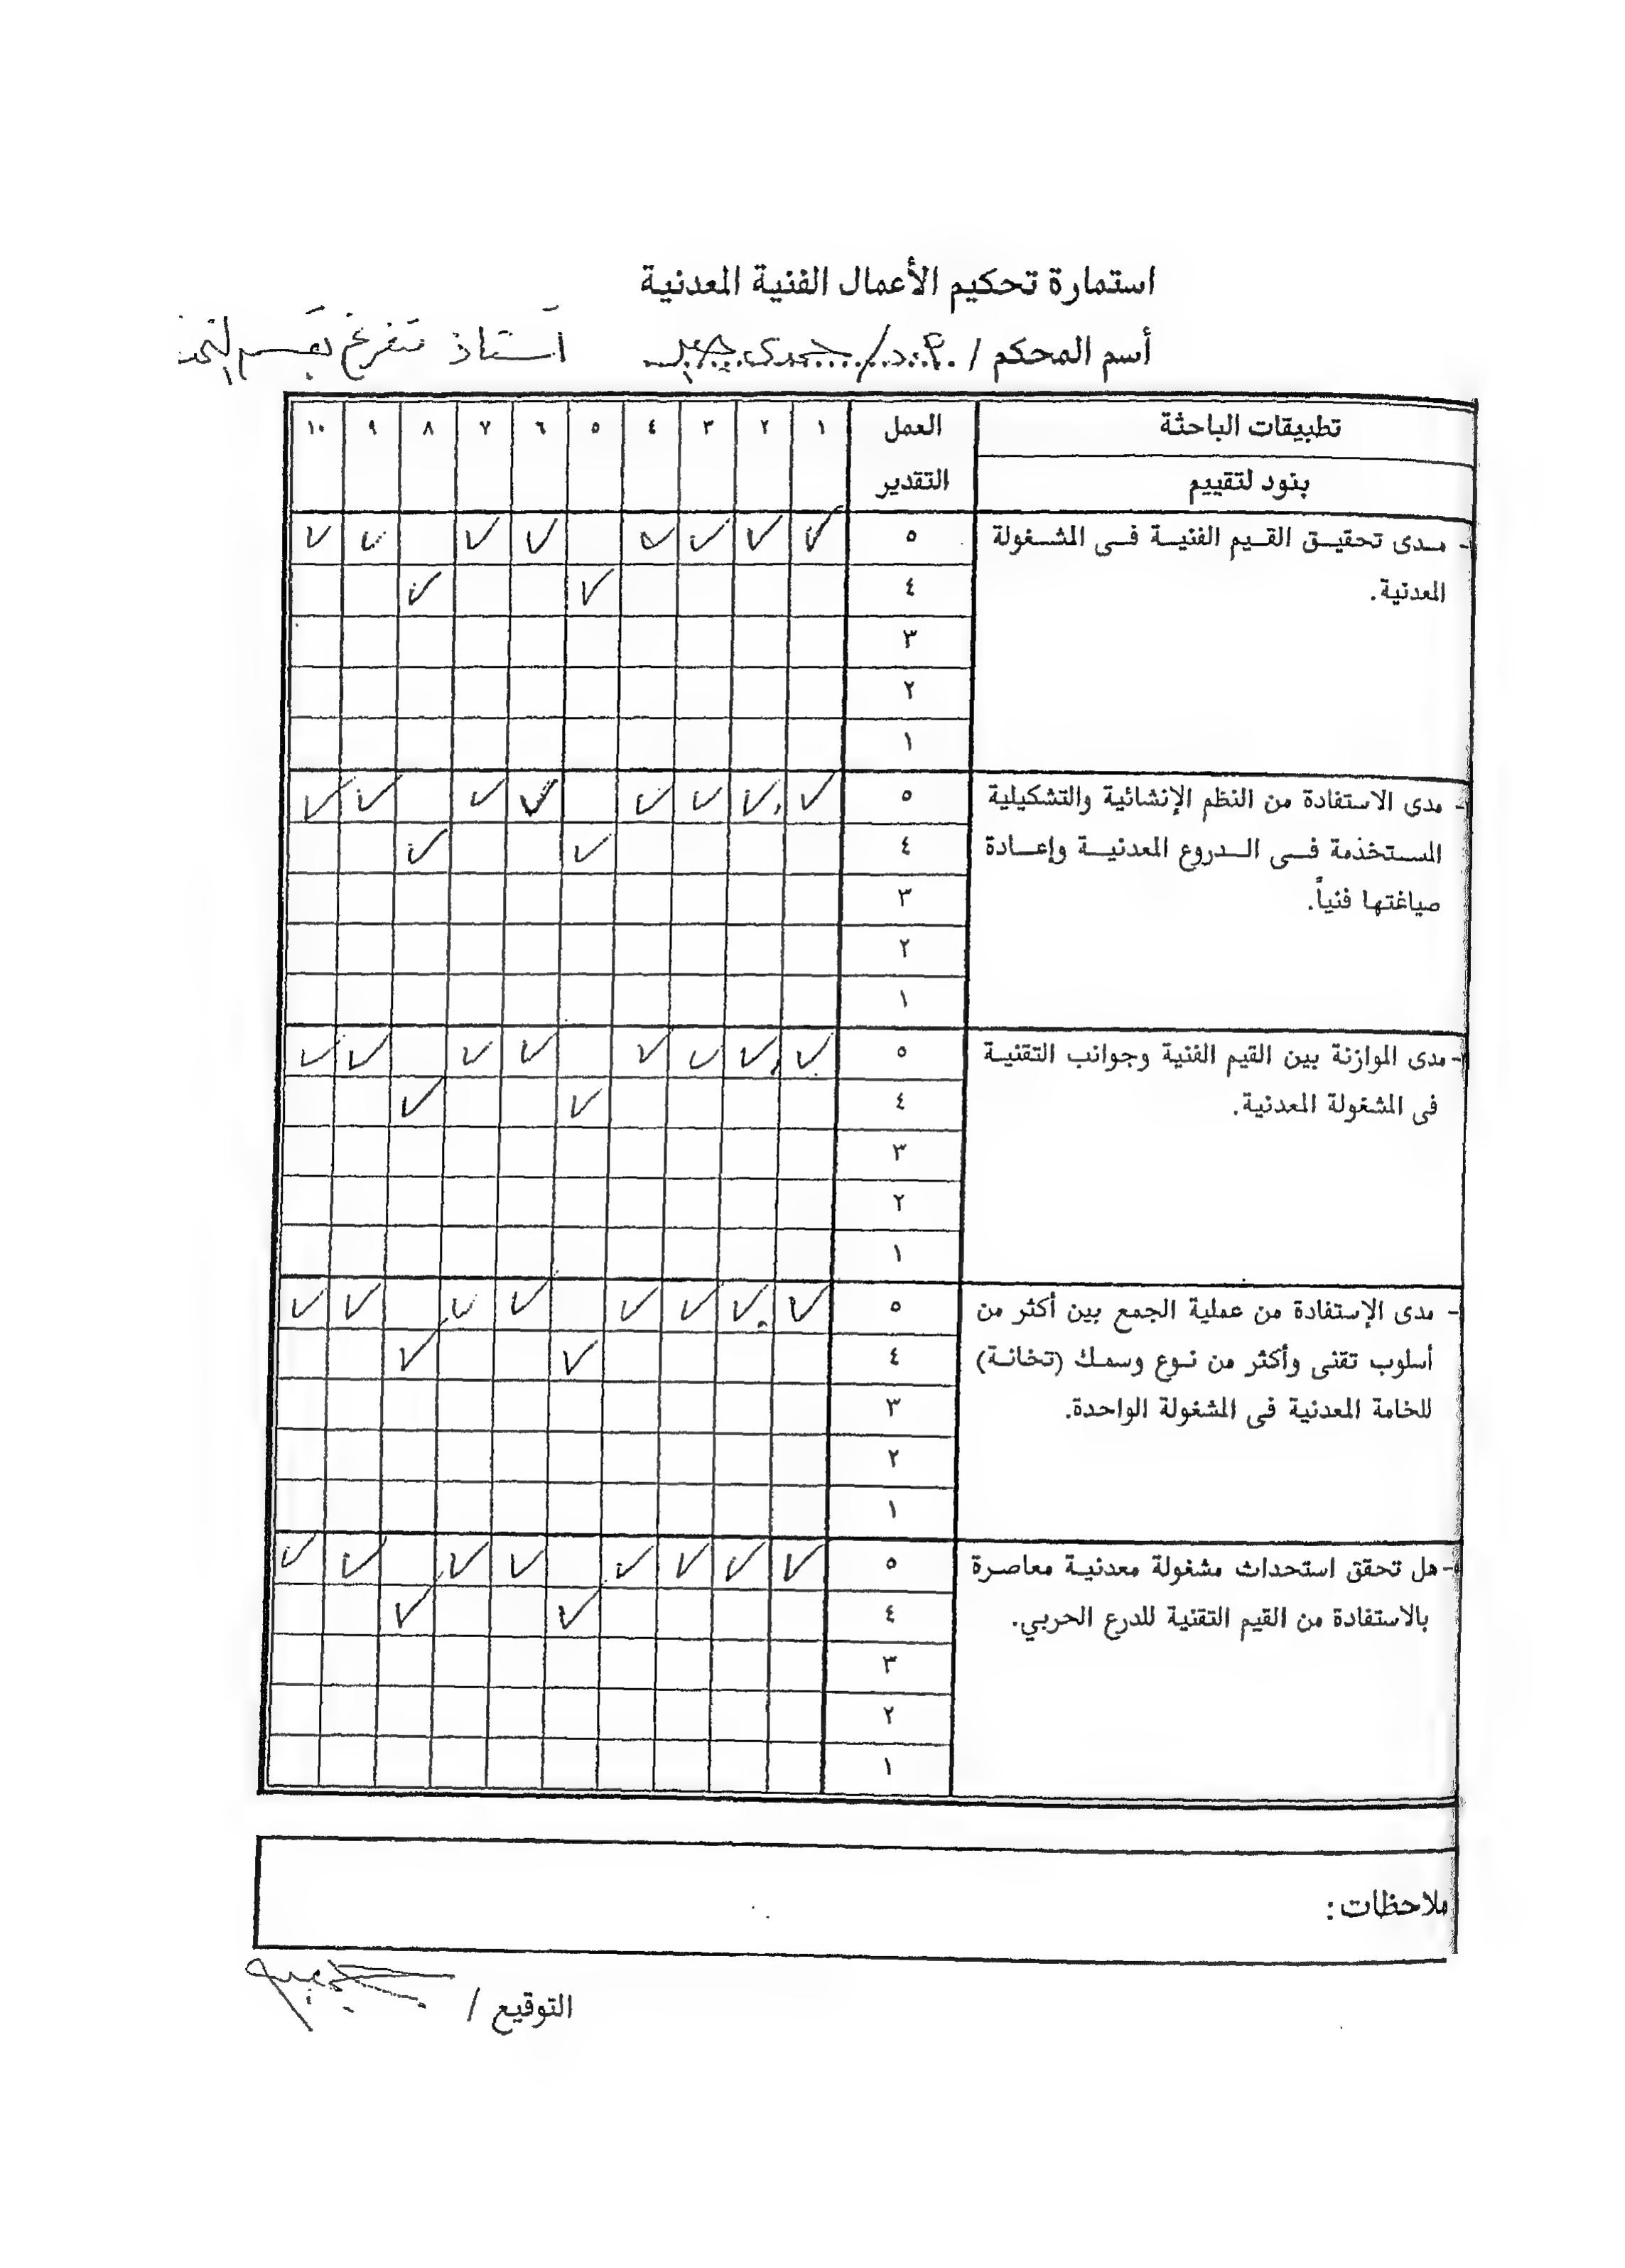 استمارة تحكيم الأعمال الفنية المعدنية
أسم المحكم / أ.د/ حمدى استاذ متفرغ بقسم
تطبيقات الباحثة العمل ١ ٢ ٣ ٤ ٥ ٦ ٧ ٨ ٩ ١٠
بنود لتقييم التقدير
- مـدى تحقيـق القـيم الفنيـة فـى المشـغولة ٥ ✓ ✓ ✓ ✓ ✓ ✓ ✓ ✓
المعدنية. ٤ ✓ ✓
٣
٢
١
- مدى الاستفادة من النظم الإنشائية والتشكيلية ٥ ✓ ✓ ✓ ✓ ✓ ✓ ✓ ✓
المسـتخذمة فـى الـدروع المعدنيـة وإعـادة ٤ ✓ ✓
صياغتها فنياً. ٣
٢
١
- مدى الموازنة بين القيم الفنية وجوانب التقنيـة ٥ ✓ ✓ ✓ ✓ ✓ ✓ ✓ ✓
فى المشغولة المعدنية. ٤ ✓ ✓
٣
٢
١
- مدى الإستفادة من عملية الجمع بين أكثر من ٥ ✓ ✓ ✓ ✓ ✓ ✓ ✓ ✓
أسلوب تقنى وأكثر من نـوع وسمـك (تخانـة) ٤ ✓ ✓
للخامة المعدنية فى المشغولة الواحدة. ٣
٢
١
- هل تحقق استحداث مشغولة معدنيـة معاصـرة ٥ ✓ ✓ ✓ ✓ ✓ ✓ ✓ ✓
بالاستفادة من القيم التقنية للدرع الحربي. ٤ ✓ ✓
٣
٢
١
ملاحظات :
التوقيع /